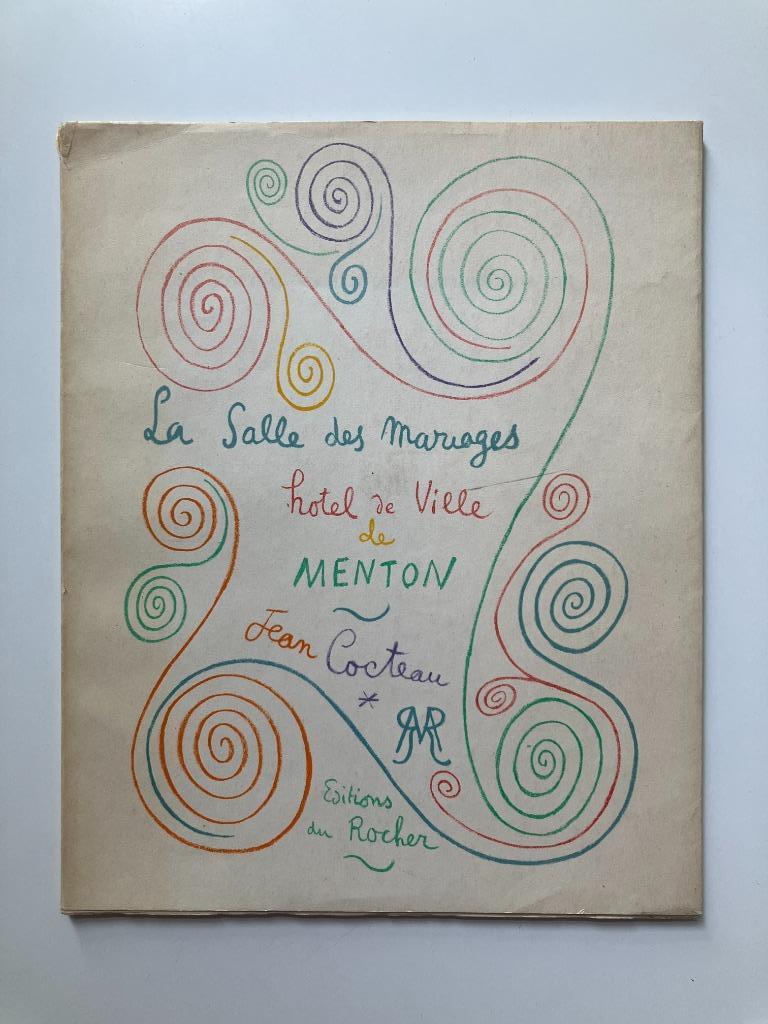 La Salle des Mariages
hotel de Ville
de
MENTON
Jean Cocteau
Editions
du Rocher